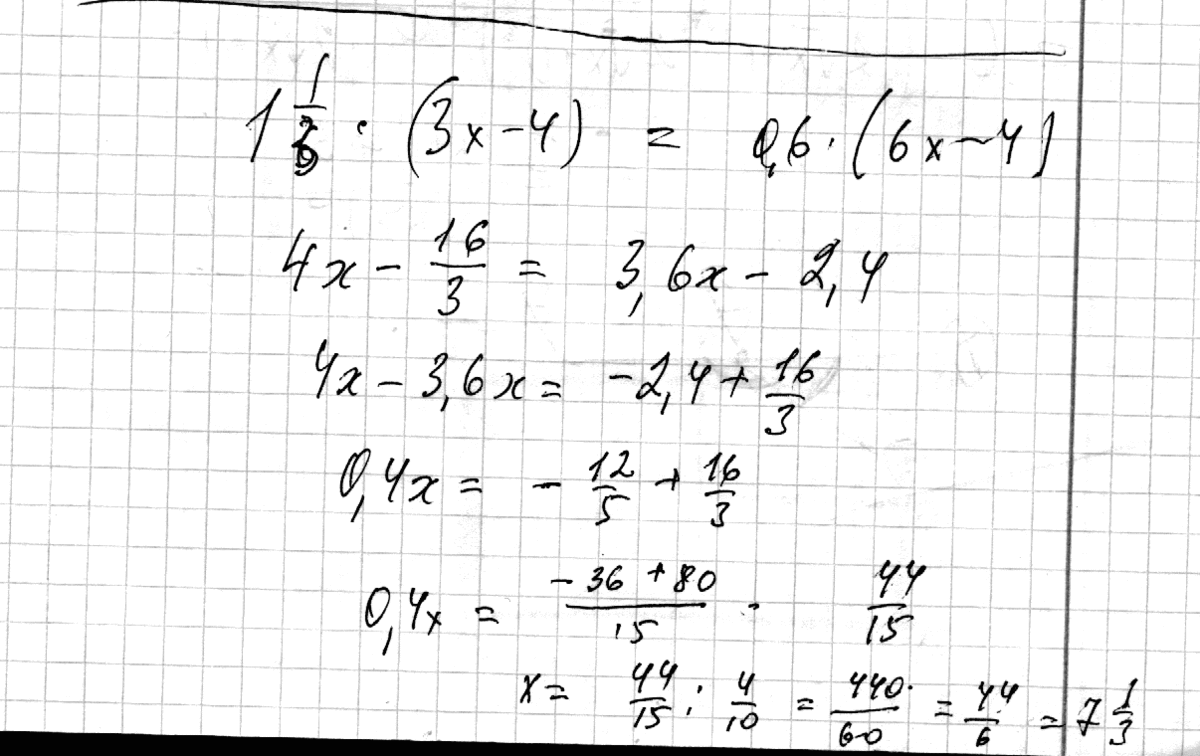 1 1/3 · (3x-4) = 0,6 · (6x-4)
4x - 16/3 = 3,6x - 2,4
4x - 3,6x = -2,4 + 16/3
0,4x = - 12/5 + 16/3
0,4x = (-36 + 80)/15 - 44/15
x = 44/15 : 4/10 = 440/60 = 44/6 = 7 1/3